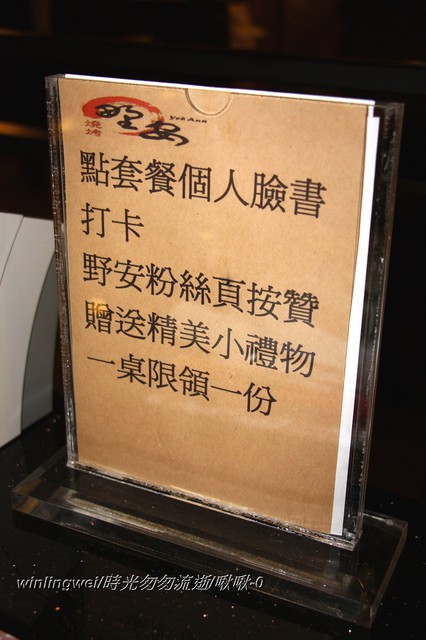 燒烤
野安
Yeh Ann
點套餐個人臉書
打卡
野安粉絲頁按贊
贈送精美小禮物
一桌限領一份
winlingwei/時光匆匆流逝/啾啾-0